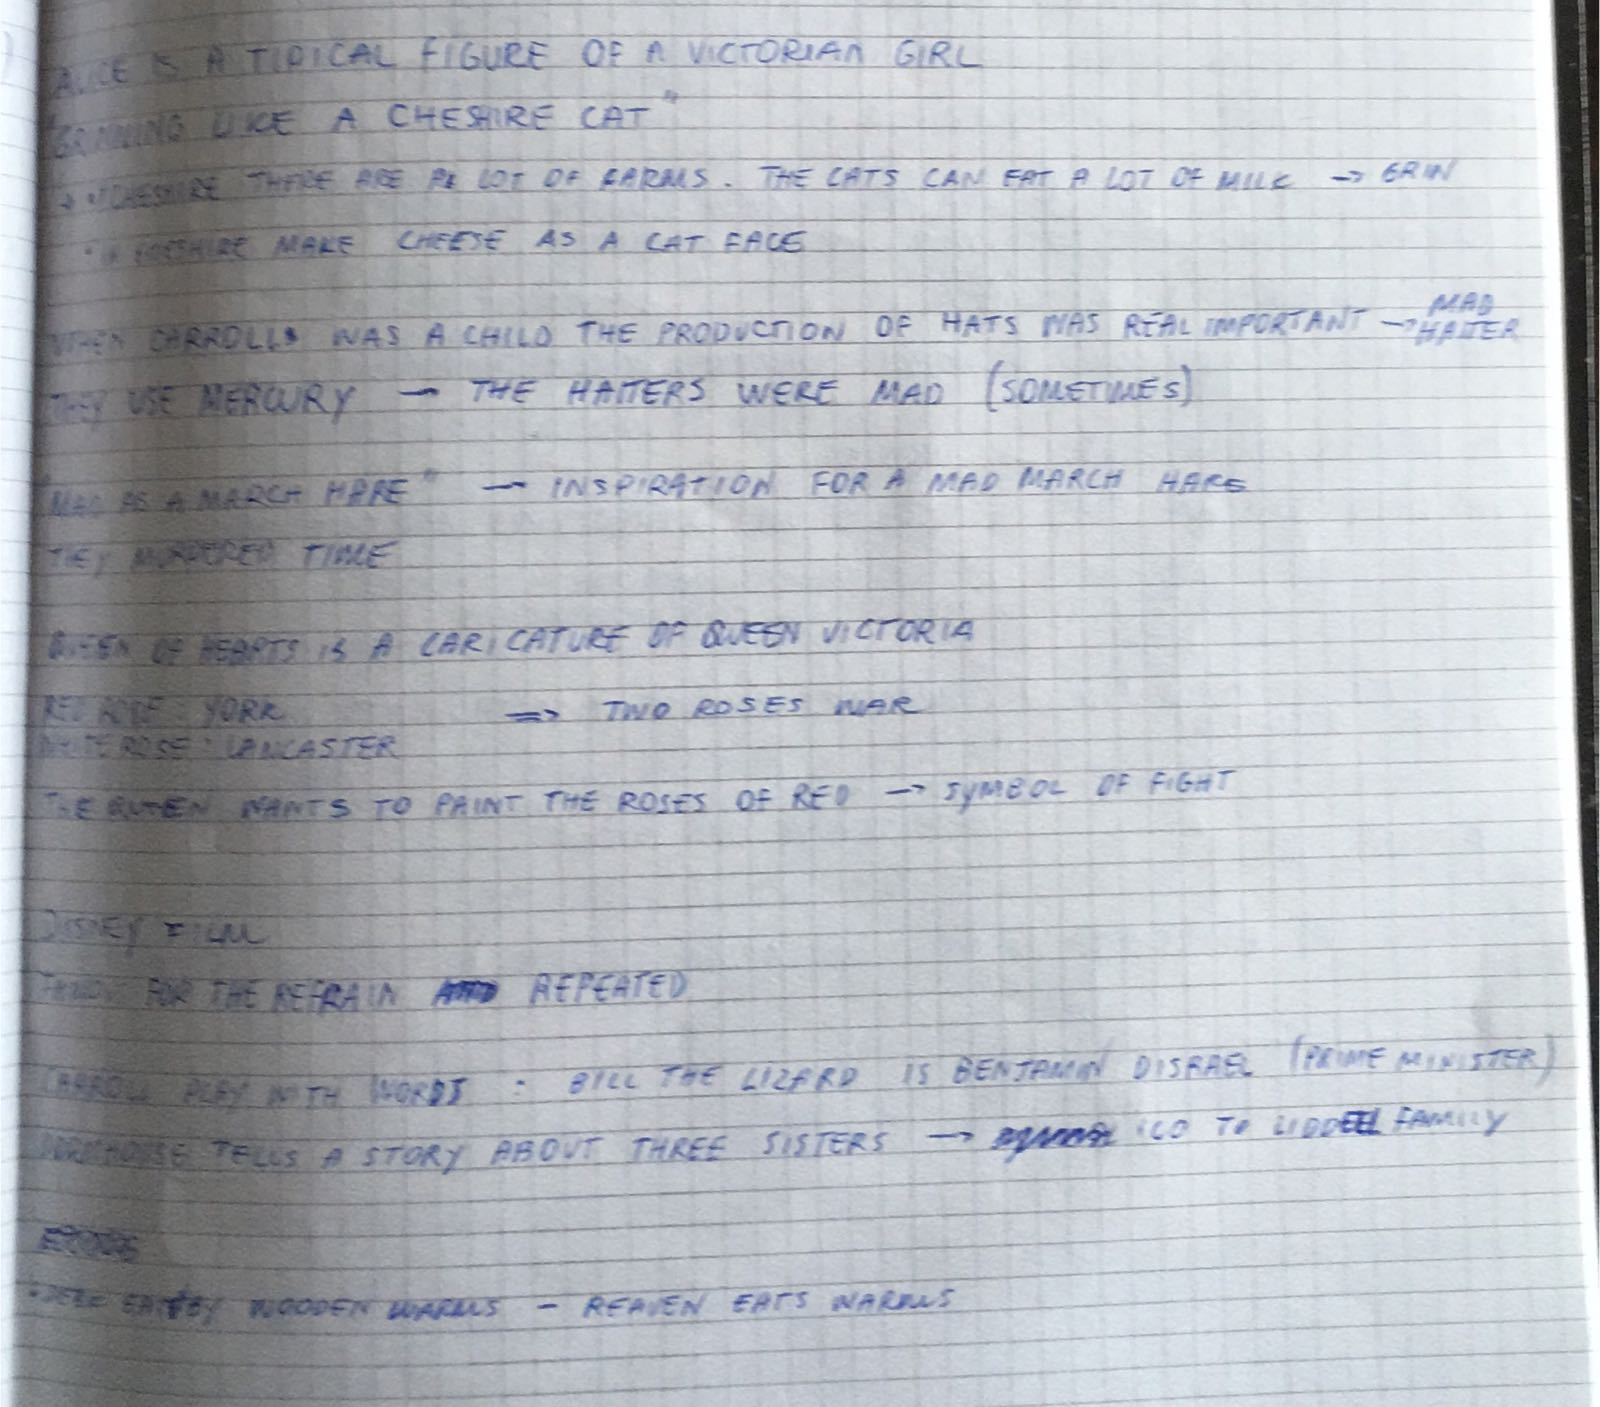 ALICE IS A TIPICAL FIGURE OF A VICTORIAN GIRL
"GRINNING LIKE A CHESHIRE CAT"
CHESHIRE THERE ARE A LOT OF FARMS. THE CATS CAN EAT A LOT OF MILK → GRIN
• IN CHESHIRE MAKE CHEESE AS A CAT FACE
WHEN CARROLL WAS A CHILD THE PRODUCTION OF HATS WAS REAL IMPORTANT → MAD HATTER
THEY USE MERCURY — THE HATTERS WERE MAD (SOMETIMES)
"MAD AS A MARCH HARE" → INSPIRATION FOR A MAD MARCH HARE
THEY MURDERED TIME
QUEEN OF HEARTS IS A CARICATURE OF QUEEN VICTORIA
RED ROSE YORK ⇒ TWO ROSES WAR
WHITE ROSE: LANCASTER
THE QUEEN WANTS TO PAINT THE ROSES OF RED → SYMBOL OF FIGHT
DISNEY FILM
FOR THE REFRAIN REPEATED
CARROLL PLAY WITH WORDS : BILL THE LIZARD IS BENJAMIN DISRAEL (PRIME MINISTER)
DORMOUSE TELLS A STORY ABOUT THREE SISTERS → TO LIDDELL FAMILY
WOODEN WARMS - REAVEN EATS WARMS